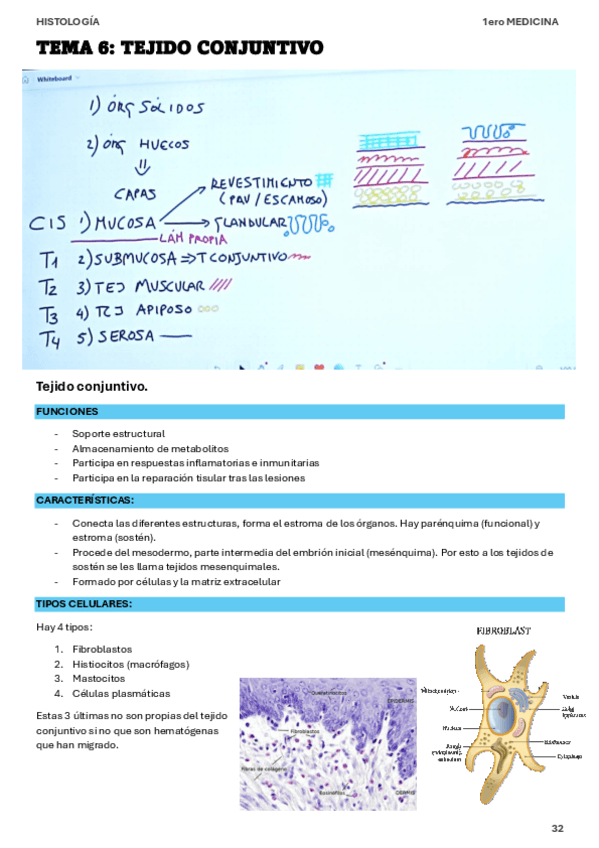 HISTOLOGÍA
1ero MEDICINA
TEMA 6: TEJIDO CONJUNTIVO
Whiteboard
1) ÓRG SÓLIDOS
2) ÓRG HUECOS
CAPAS
REVESTIMIENTO
(PAV / ESCAMOSO)
CIS 1) MUCOSA
GLANDULAR
LÁM PROPIA
T1 2) SUBMUCOSA ⇒ T CONJUNTIVO
T2 3) TEJ MUSCULAR
T3 4) TEJ APIPOSO
T4 5) SEROSA
Tejido conjuntivo.
FUNCIONES
- Soporte estructural
- Almacenamiento de metabolitos
- Participa en respuestas inflamatorias e inmunitarias
- Participa en la reparación tisular tras las lesiones
CARACTERÍSTICAS:
- Conecta las diferentes estructuras, forma el estroma de los órganos. Hay parénquima (funcional) y
estroma (sostén).
- Procede del mesodermo, parte intermedia del embrión inicial (mesénquima). Por esto a los tejidos de
sostén se les llama tejidos mesenquimales.
- Formado por células y la matriz extracelular
TIPOS CELULARES:
Hay 4 tipos:
1. Fibroblastos
2. Histiocitos (macrófagos)
3. Mastocitos
4. Células plasmáticas
Estas 3 últimas no son propias del tejido
conjuntivo si no que son hematógenas
que han migrado.
Queratinocitos
EPIDERMIS
Fibroblastos
Fibras de colágeno
Eosinófilos
DERMIS
FIBROBLAST
Cytoplasm
32